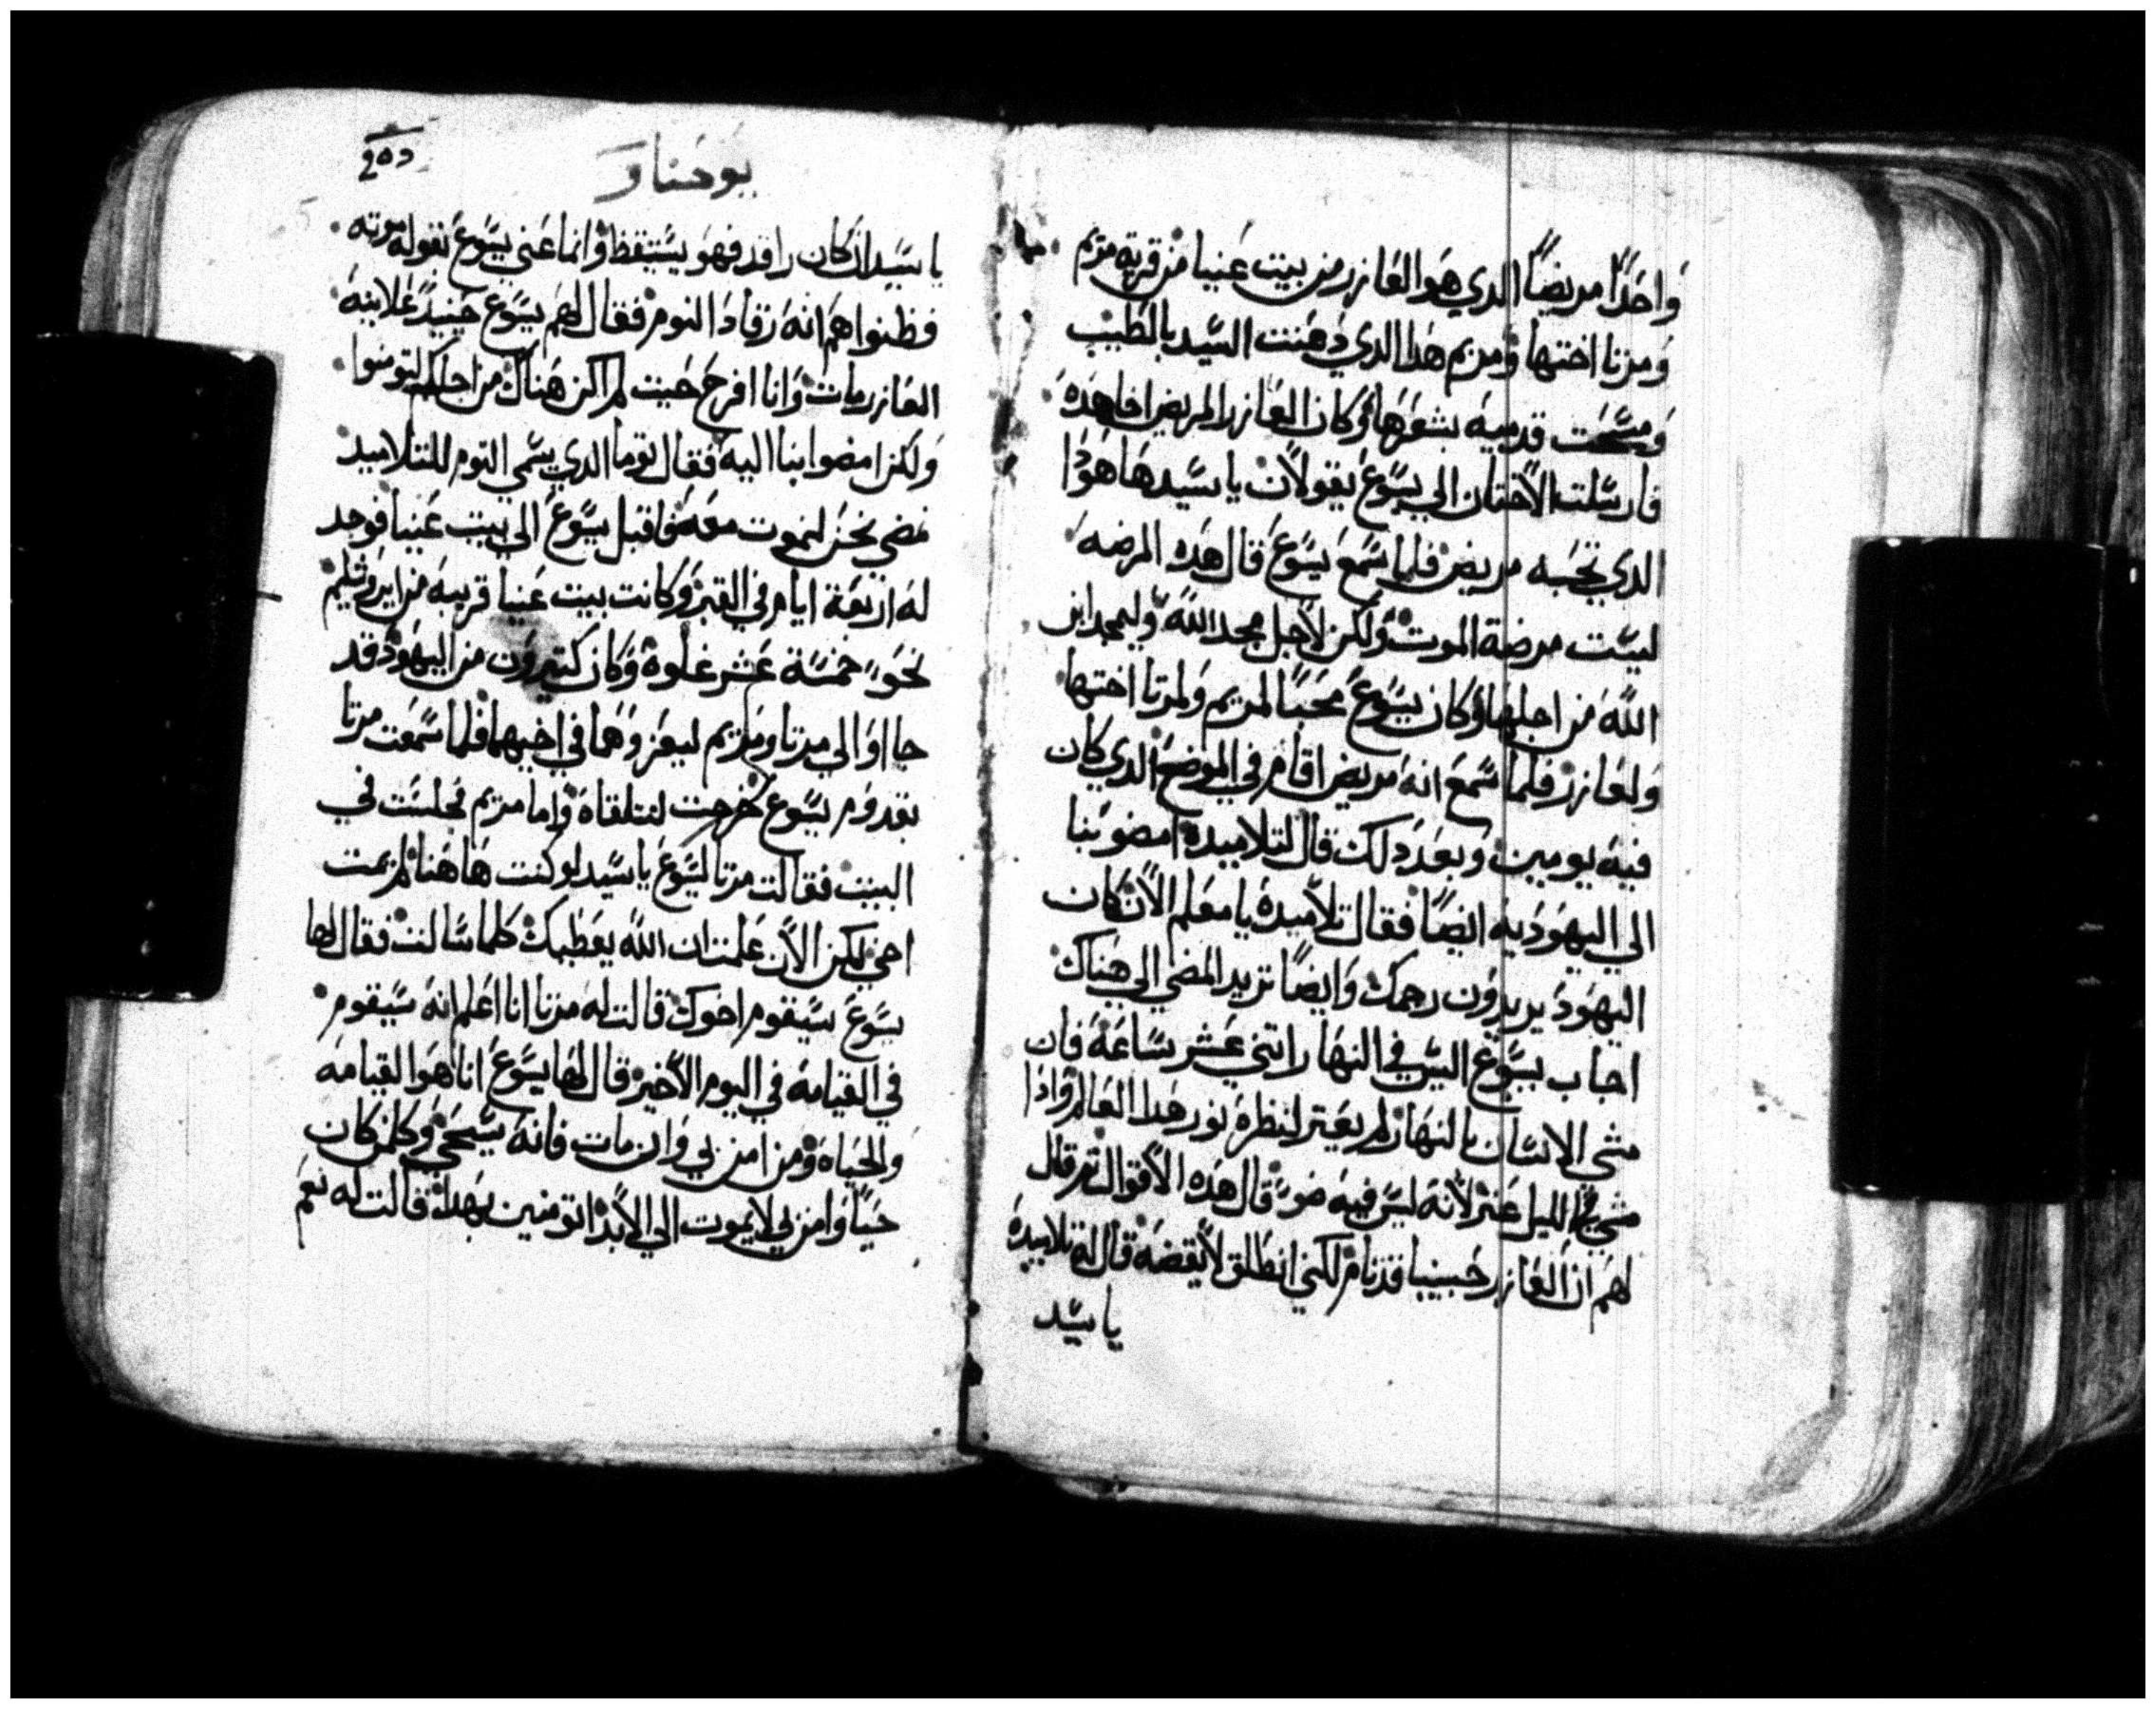 واحدًا مريضًا الدي هو العازر من بيت عنيا من قرية مريم
ومرتا اختها ومريم هدا الدي دهنت السيد بالطيب
ومسحت قدميه بشعرها وكان العازر المريض اخا هده
فارسلت الاختان الي يسوع يقولان يا سيد ها هودا
الدي تحبه مريض فلما سمع يسوع قال هده المرضه
ليست مرضة الموت ولكن لاجل مجد الله وليمجد ابن
الله من اجلها وكان يسوع محبًا لمريم ولمرتا اختها
ولعازر فلما سمع انه مريض اقام في الموضع الدي كان
فيه يومين وبعد دلك قال لتلاميده امضو بنا
الي اليهوديه ايضًا فقال تلاميده يا معلم الان كان
اليهود يريدون رجمك وايضًا تريد المضي الي هناك
اجاب يسوع اليس في النهار اتني عشر ساعة فان
مشي الانسان بالنهار لم يعتر لنظره نور هدا العالم وادا
مشي بالليل عتر لانه ليس فيه ضو قال هده الاقوال تم قال
لهم ان العازر حبيبنا قد نام لكني انطلق لايقضه قال له تلاميده
يا سيد
يوحنا
يا سيد ان كان راقد فهو يستيقظ وانما عني يسوع بقوله موته
فظنوا هم انه رقاد النوم فقال لهم يسوع حينيد علانيه
العازر مات وانا افرح حيت لم اكن هناك من اجلكم لتومنوا
ولكن امضوا بنا اليه فقال توما الدي يسمي التوم للتلاميد
نمضي نحن لنموت معه فاقبل يسوع الي بيت عنيا فوجد
له اربعة ايام في القبر وكانت بيت عنيا قريبه من ايروشليم
نحو خمسة عشر غلوة وكان كتيرون من اليهود قد
جااوا الي مرتا ومريم ليعزوهما في اخيهما فلما سمعت مرتا
بقدوم يسوع خرجت لتتلقاه واما مريم فجلست في
البيت فقالت مرتا ليسوع يا سيد لو كنت هاهنا لم يمت
اخي لكن الان علمت ان الله يعطيك كلما سالت فقال لها
يسوع سيقوم اخوك قالت له مرتا انا اعلم انه سيقوم
في القيامة في اليوم الاخير قال لها يسوع انا هو القيامه
والحياه ومن امن بي وان مات فانه سيحي وكلمن كان
حيًا وامن بي لا يموت الي الابد اتومنين بهدا قالت له نعم